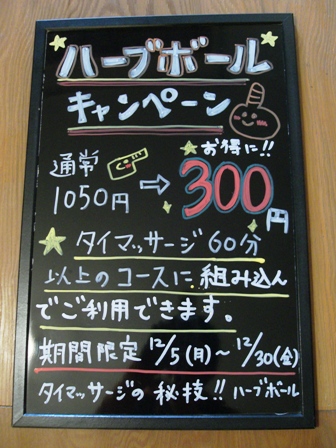 ハーブボール
キャンペーン
お得に!!
通常
1050円
⇨
300円
タイマッサージ60分
以上のコースに組み込ん
でご利用できます。
期間限定 12/5(月)～12/30(金)
タイマッサージの秘技!! ハーブボール